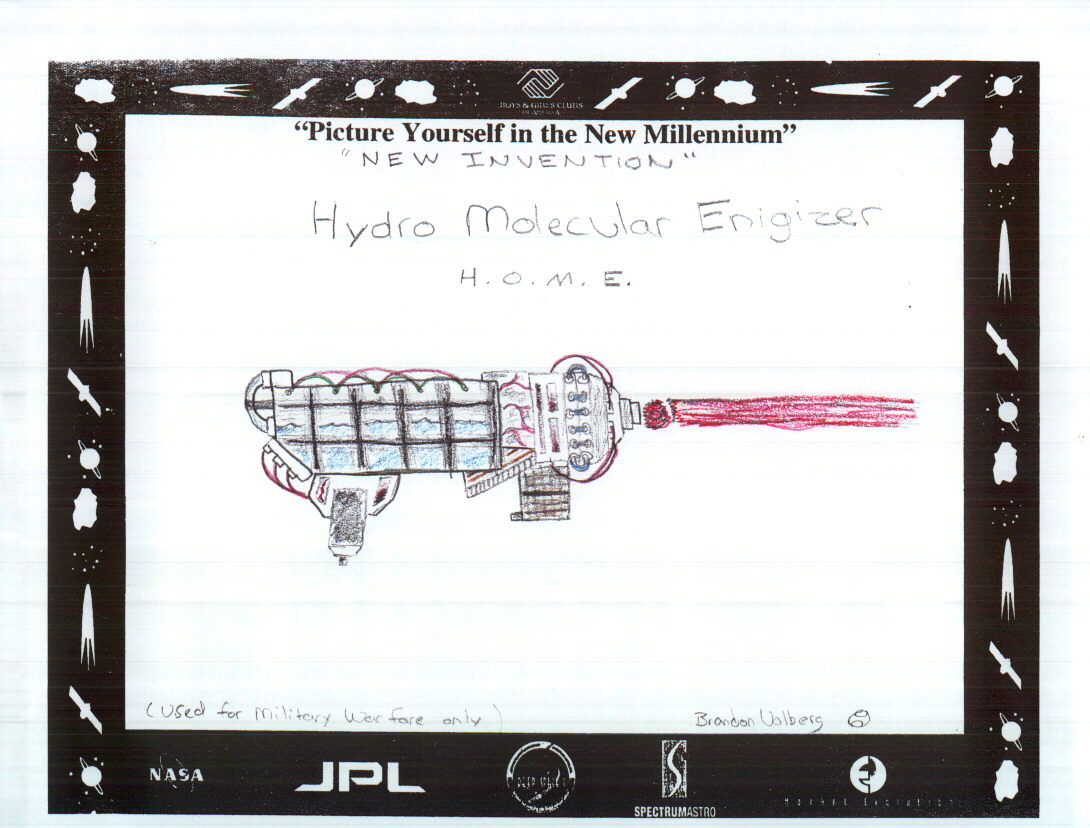 BOYS & GIRLS CLUBS
OF AMERICA
“Picture Yourself in the New Millennium”
"NEW INVENTION"
Hydro Molecular Enigizer
H.O.M.E.
(Used for Military War fare only)
Brandon Valberg
NASA
JPL
SPECTRUMASTRO